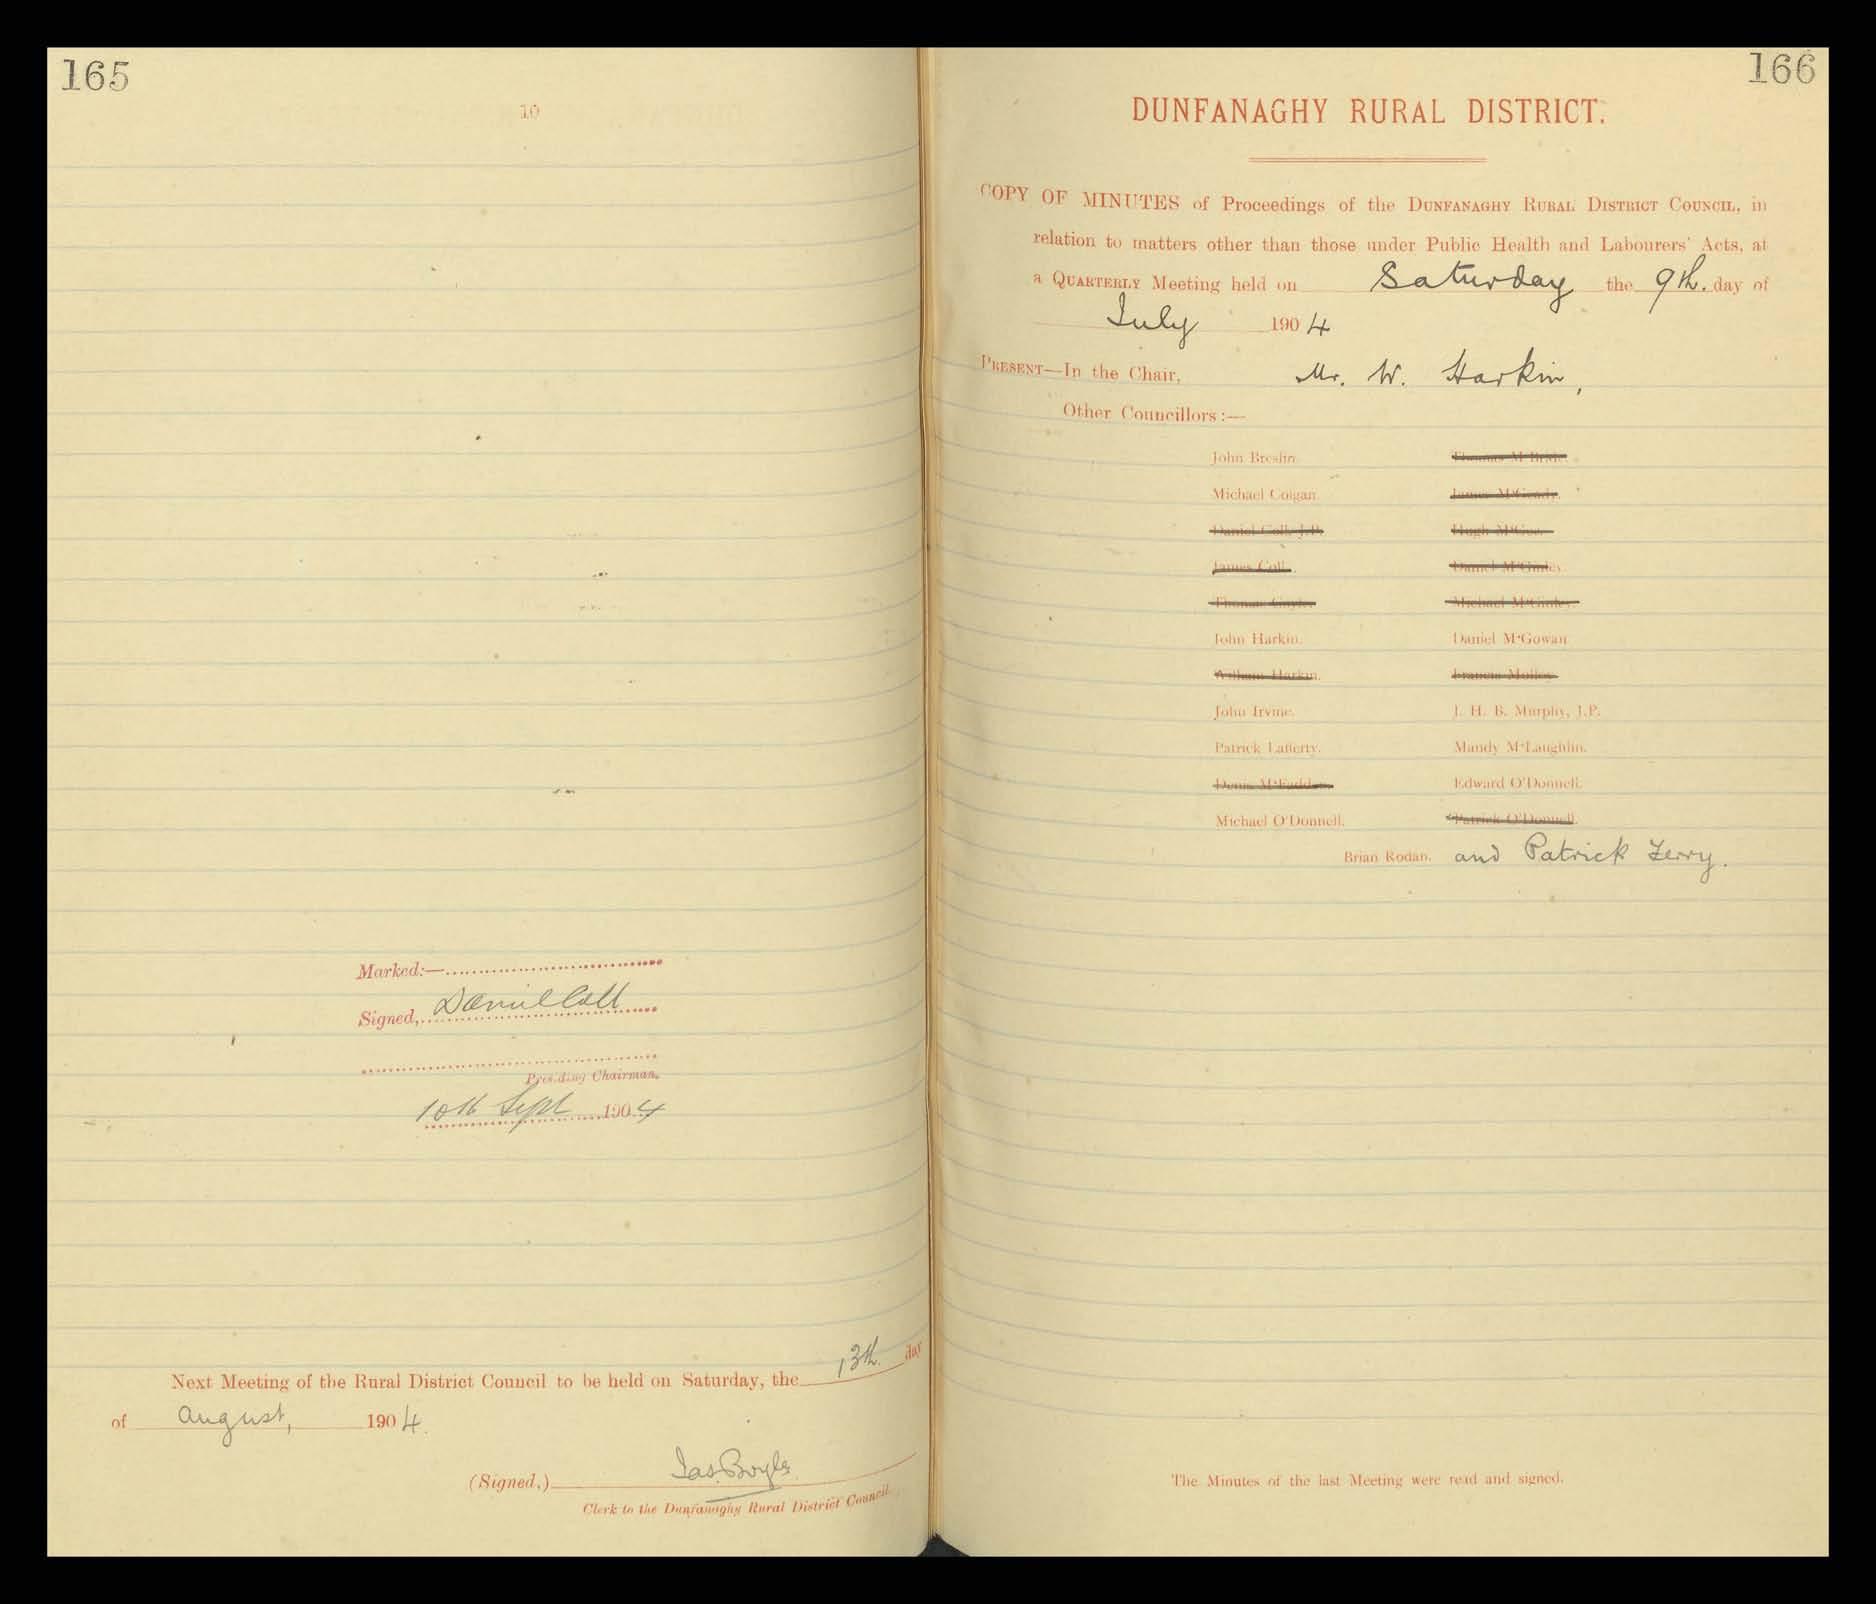 165
10
Marked:—
Signed, Daniel Coll
Presiding Chairman.
10th Sept 1904
Next Meeting of the Rural District Council to be held on Saturday, the 13th. day
of August, 1904.
(Signed,) Jas. Boyle
Clerk to the Dunfanaghy Rural District Council.
166
DUNFANAGHY RURAL DISTRICT.
COPY OF MINUTES of Proceedings of the DUNFANAGHY RURAL DISTRICT COUNCIL, in
relation to matters other than those under Public Health and Labourers' Acts, at
a QUARTERLY Meeting held on Saturday the 9th. day of
July 1904
PRESENT—In the Chair, Mr. W. Harkin,
Other Councillors:—
John Breslin. Thomas M'Bride.
Michael Colgan. James
Daniel Coll, J.P. Hugh M'Gee.
James Coll. Daniel M'Ginley.
Thomas Michael M'Ginley.
John Harkin. Daniel M'Gowan
William Harkin. Francis Molloy.
John Irvine. J. H. B. Murphy, J.P.
Patrick Lafferty. Mandy M'Laughlin.
Denis M'Fadden. Edward O'Donnell.
Michael O'Donnell. Patrick O'Donnell.
Brian Rodan. and Patrick Ferry.
The Minutes of the last Meeting were read and signed.